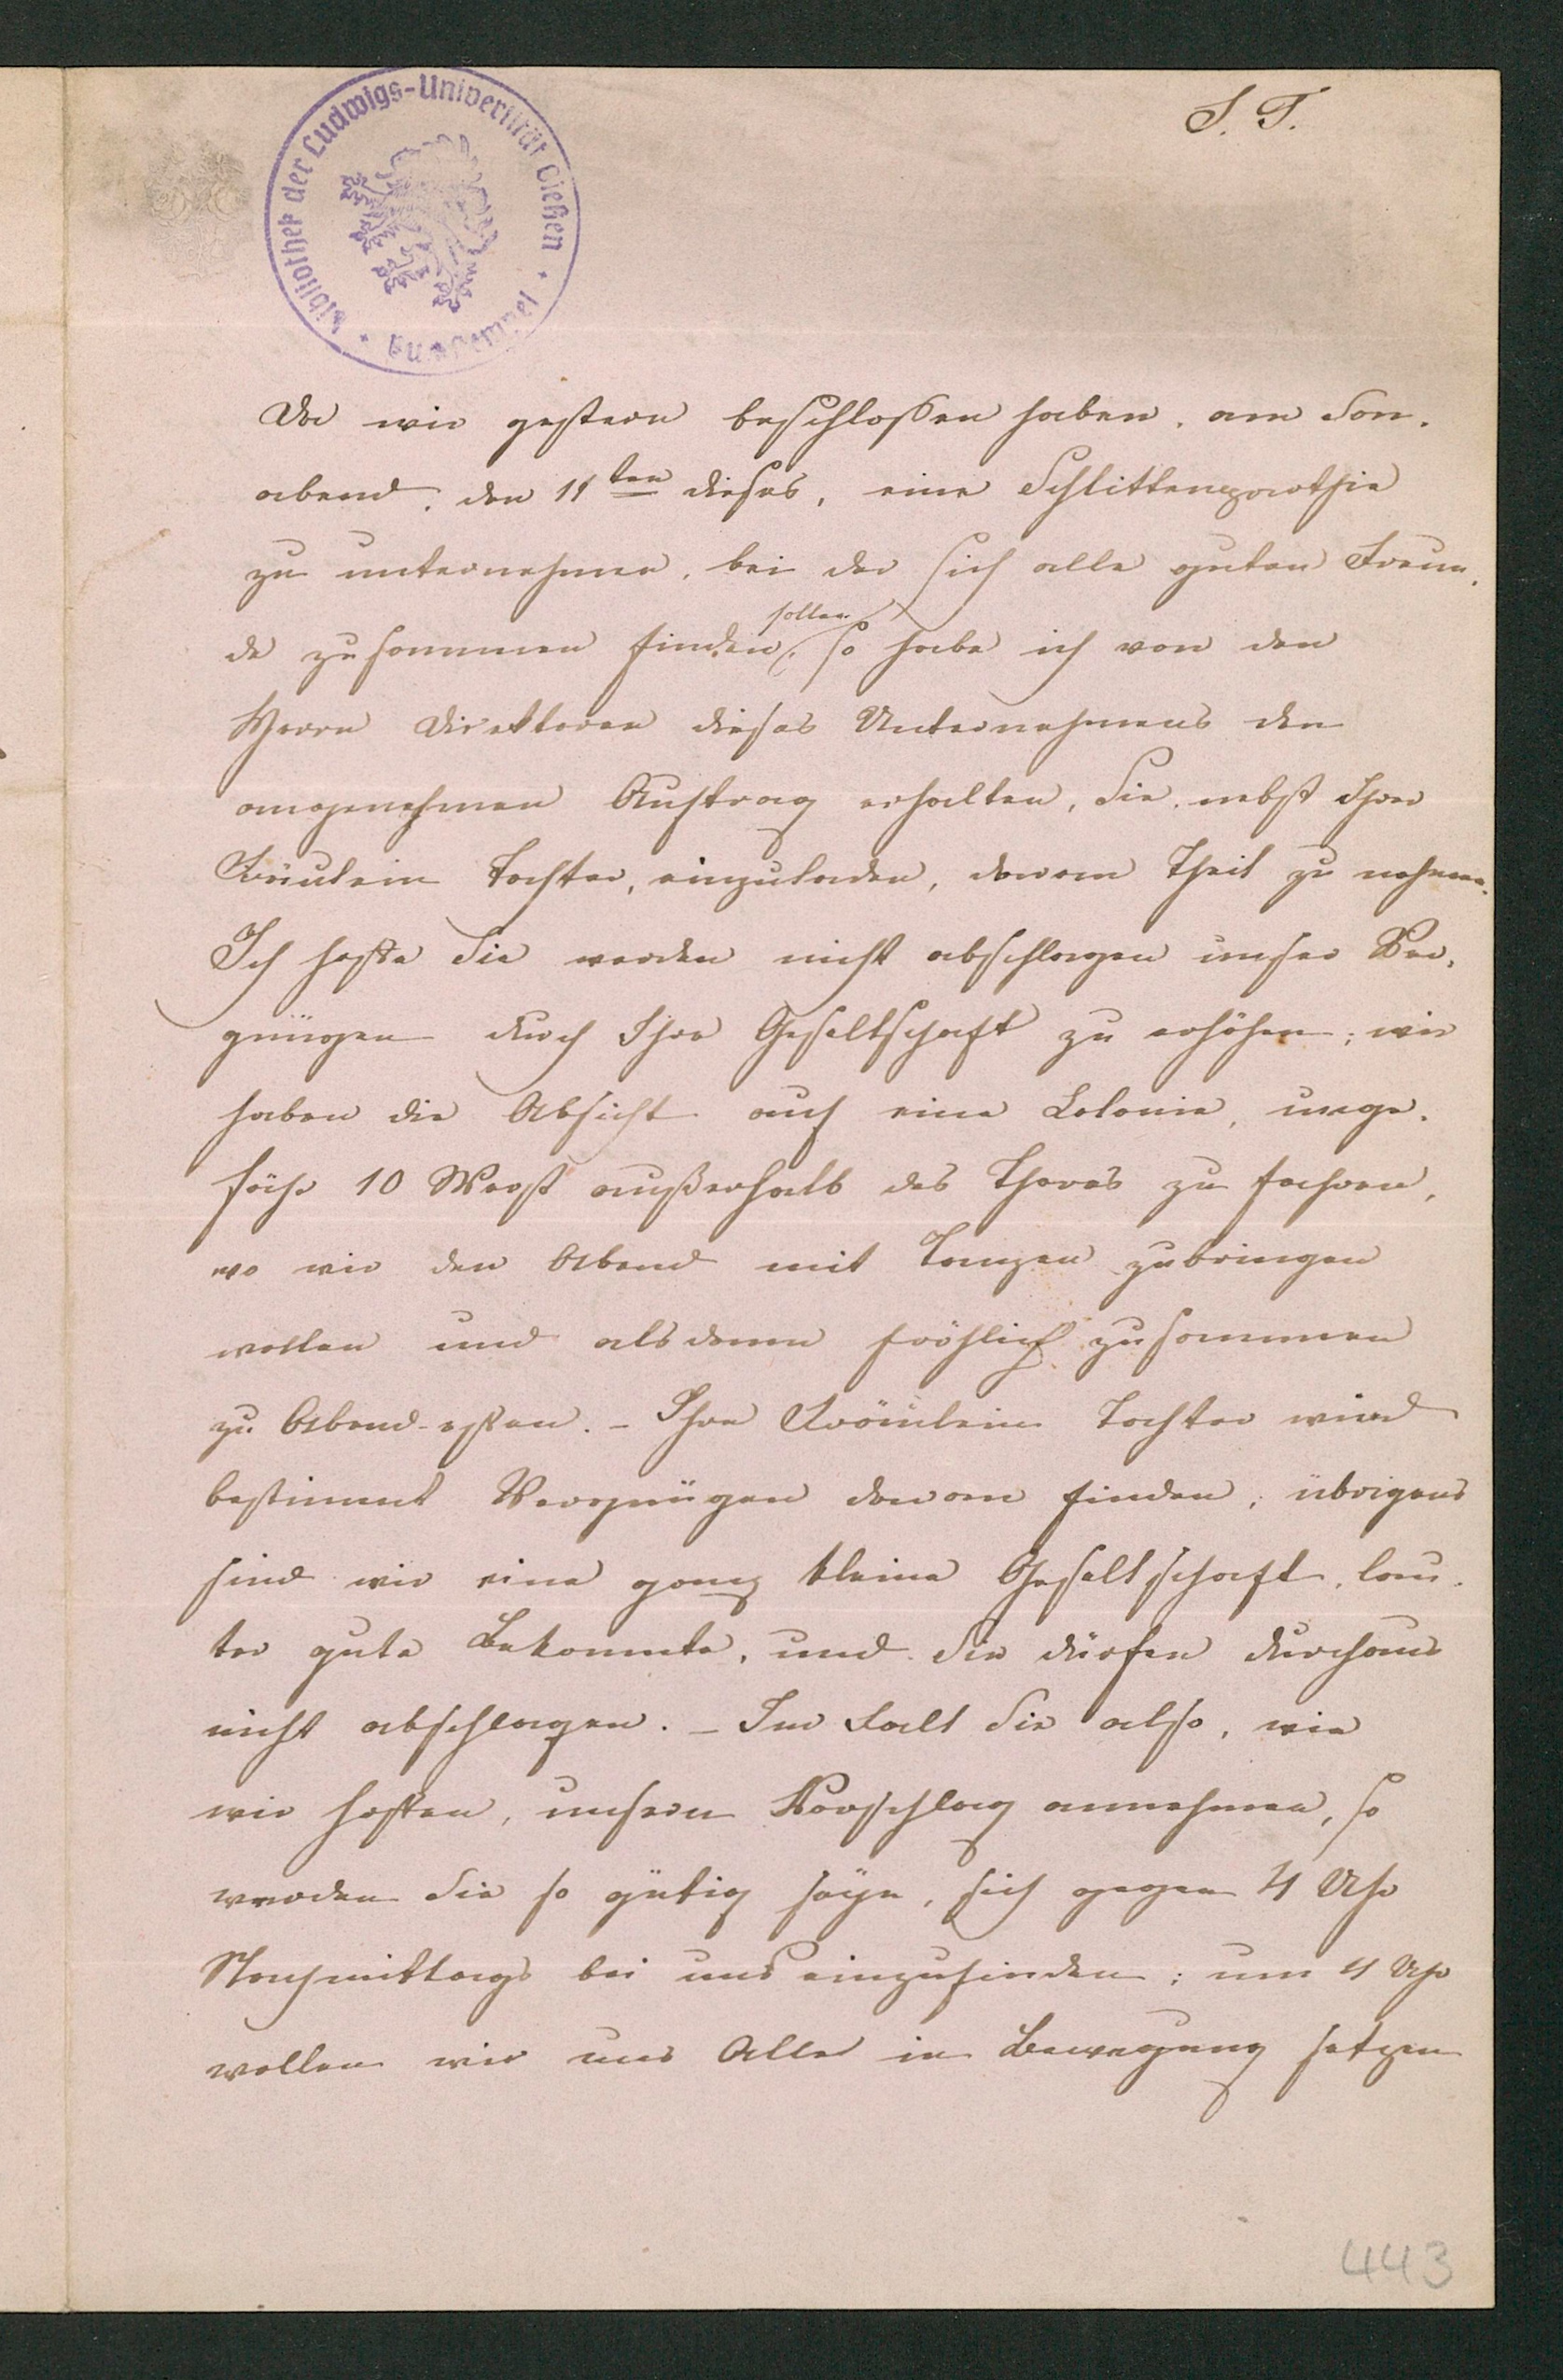 S. T.
Bibliothek der Ludwigs-Universität Gießen
Da wir gestern beschloßen haben, am Son,
abend, den 11ten dieses, eine Schlittenparthie
zu unternehmen, bei der sich alle guten Freun,
sollen
de zusammen finden, so habe ich von den
Herrn Direktoren dieses Unternehmens den
angenehmen Auftrag erhalten, Sie, nebst Ihrer
Fräulein Tochter, einzuladen, daran Theil zu nehmen.
Ich hoffe Sie werden nicht abschlagen unser Ver,
gnügen durch Ihre Gesellschaft zu erhöhen; wir
haben die Absicht auf eine Colonie, unge,
fähr 10 Werst außerhalb des Thores zu fahren,
wo wir den Abend mit Tanzen zubringen
wollen und alsdann fröhlich zusammen
zu Abend-essen. – Ihre Fräulein Tochter wird
bestimmt Vergnügen daran finden; übrigens
sind wir eine ganz kleine Gesellschaft, lau,
ter gute Bekannte, und Sie dürfen durchaus
nicht abschlagen. – Im Fall Sie also, wie
wir hoffen, unsern Vorschlag annehmen, so
werden Sie so gütig seyn, sich gegen 4 Uhr
Nachmittags bei uns einzufinden; um 4 Uhr
wollen wir uns Alle in Bewegung setzen
443